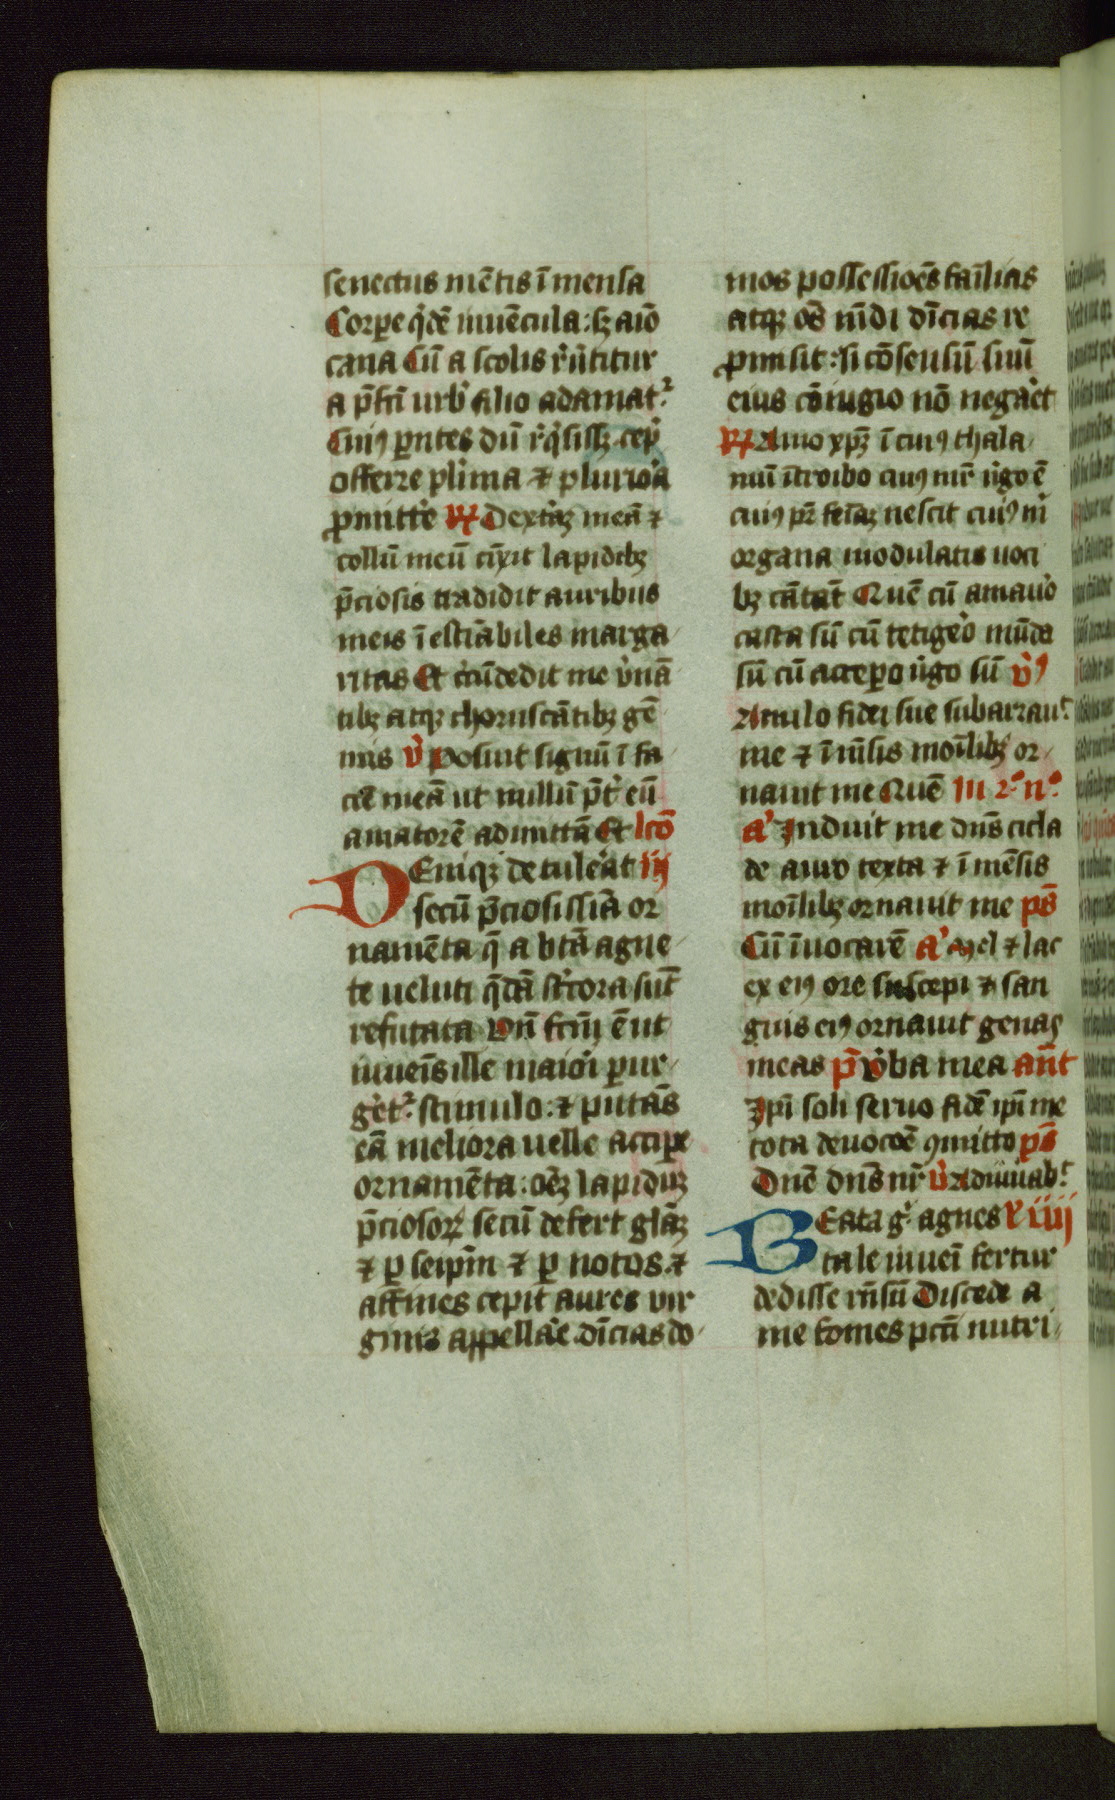 senectus me᷒tis ī mensa
Corpe q̇dē iuuēcula: sꝫ aīo
cana Cū a scolis r̄u̇titur
a p̄fc̄ti urb̾ filio adamat᷑
Cuiꝰ pentes dū r̄q̇sissꝫ cep̄
offerre pl̄ima ⁊ pluriōa
ꝓmitt̾e R̸ Dext̾aꝫ meā ⁊
collū meū cīxit lapidibꝫ
p̄ciosis tradidit auribus
meis īestīabiles marga
ritas Et c̾cūdedit me v̾nā
tibꝫ atqꝫ choruscātibꝫ gē
mis v̾ Posuit signū ī fa
ciē meā ut nullū p̄t̾ eū
amatorē admittā Et lc̄o
DEniqꝫ detuler̾at iij
secū p̄ciosissīa or
namēta q̄ a btā agne
te ueluti q̄dā st̾cora sūt
refutata Vn̄ fcm̄ ē ut
iuuēis ille maiori pur
ger̾et᷑ stimulo: ⁊ putās
eā meliora uelle accipe
ornamēta: oēꝫ lapidūꝫ
p̄ciosoꝝ secū defert gl̄aꝫ
⁊ ꝑ seip̄m ⁊ ꝑ notos ⁊
affines cepit aures vir
ginis appellar̾e diu̅cias do
mos possessiōes fāilias
atqꝫ oēs mūdi diu̅cias re
ꝓmisit: si cōsensū suū
eius cōiugio nō negar̾et
R̸ Amo xp̄ꝫ ī cuiꝰ thala
mū ītroibo cuiꝰ mr̄ u̇go ē
cuiꝰ pr̄ feīaꝫ nescit cuiꝰ m̄
organa modulatis uoci
bꝫ cātāt Quē cū amauo̾
casta sū cū tetige̾o mūda
sū cū accepo u̇go sū v̾ꝰ
Anulo fidei sue subarrau᷑
me ⁊ īmēsis moīlibꝫ or
nauit me Quē In 2° n°
a̾ Induit me dn̄s cicla
de auro texta ⁊ īmēsis
moīlibꝫ ornauit me ps̄
Cū īuocarē a̾ Mel ⁊ lac
ex eiꝰ ore suscepi ⁊ san
guis eiꝰ ornauit genas
meas p̄s v̾ba mea ant̄
Ipī soli seruo fidē ipī me
tota deuocōe ꝯmitto ps̄
Dn̄e dn̄s nr̄ v̾ Adiuuab᷑
BEata g° agnes lc̄ iiij
tale iuueni fertur
dedisse rn̄sū Discede a
me fomes pcti nutri